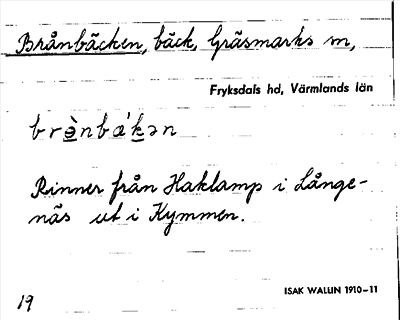 Brånbäcken, bäck, Gräsmarks sn,
Fryksdals hd, Värmlands län
brə̀nbæ'kən
Rinner från Haklamp i Långe-
näs ut i Kymmen.
ISAK WALLIN 1910-11
19